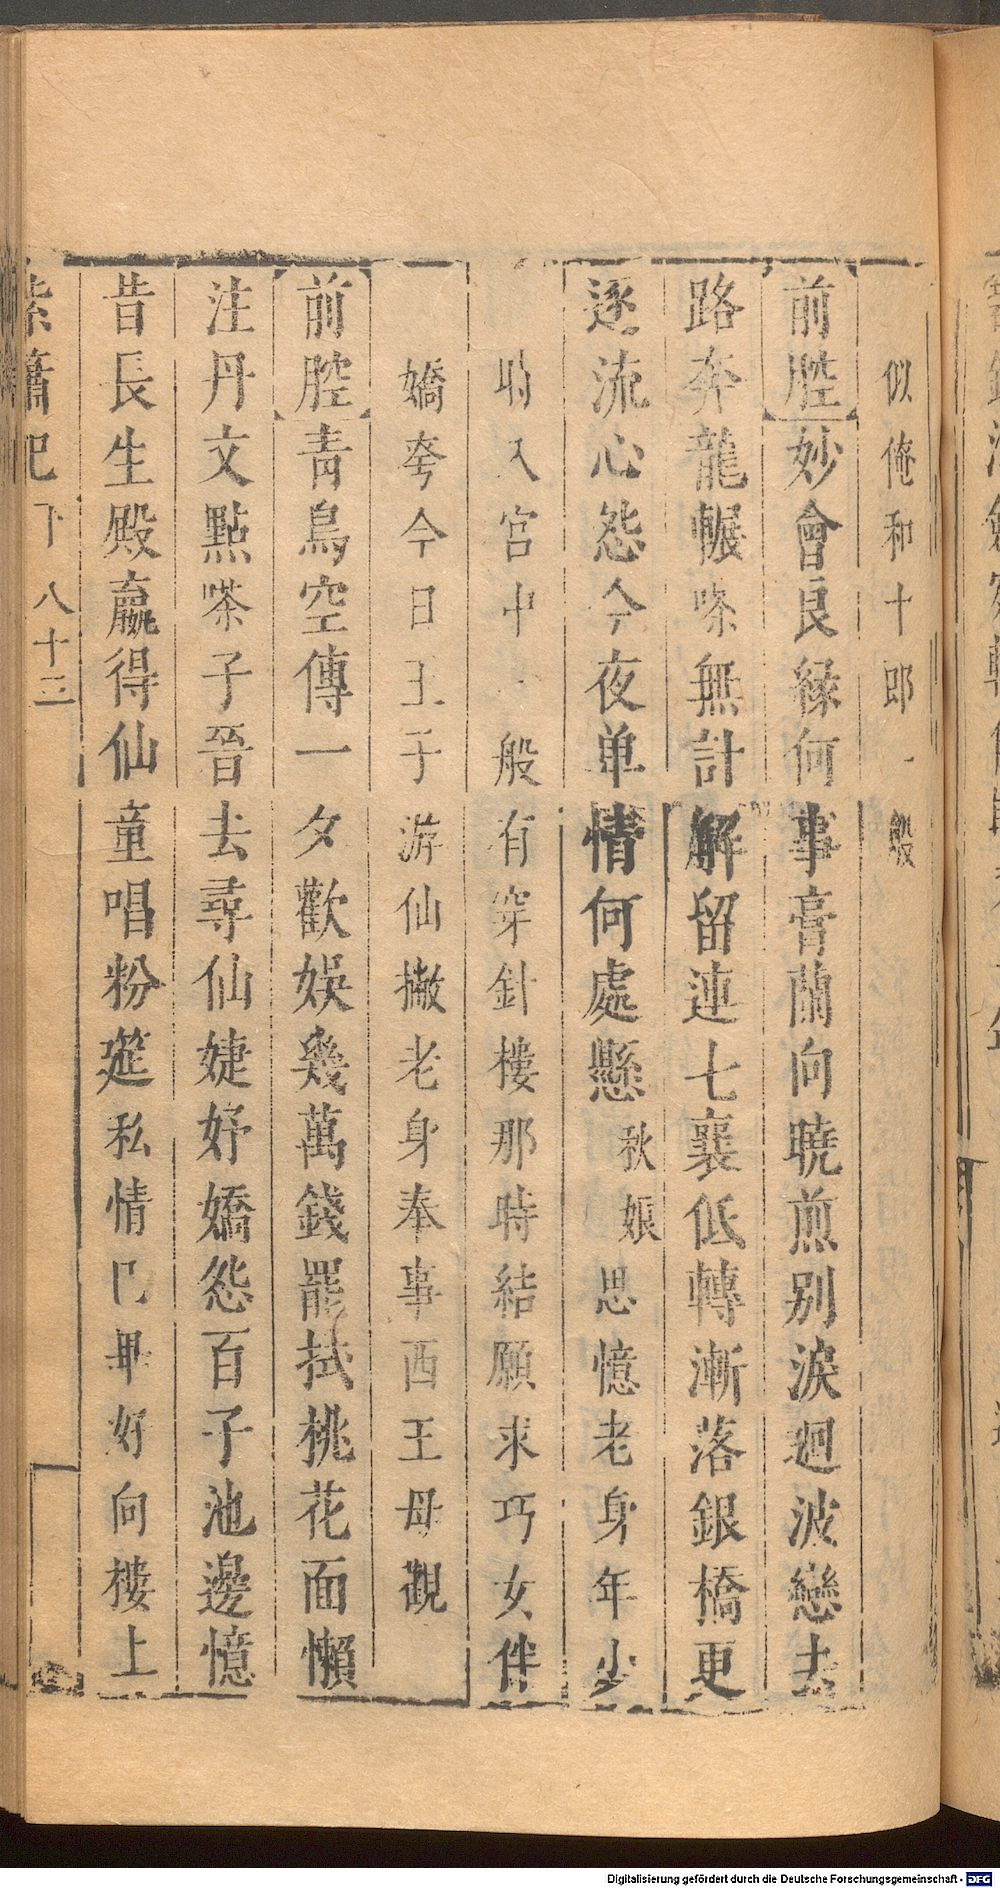 似俺和十郎一般
前腔妙會良緣何事膏蘭向曉煎别淚迴波戀去
路奔龍輾喀無計解留連七襄低轉漸落銀橋更
逐流心怨今夜单情何處懸秋娘思憶老身年少
時入宮中一般有穿針樓那時結願求巧女伴
嬌奓今日王子游仙撇老身奉事西王母觀
前腔青鳥空傳一夕歡娛幾萬錢罷拭桃花面懶
注丹文點嗏子晉去尋仙婕妤嬌怨百子池邊憶
昔長生殿嬴得仙童唱粉筵私情巳畢好向樓上
紫簫記 下 八十三
Digitalisierung gefördert durch die Deutsche Forschungsgemeinschaft - DFG